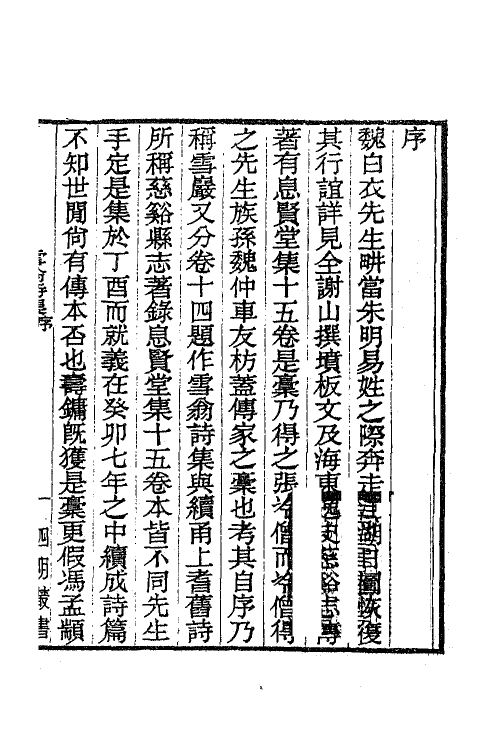 序
魏白衣先生畊當朱明易姓之際奔走江湖日圖恢復
其行誼詳見全謝山撰墳板文及海東逸史慈谿志傳
著有息賢堂集十五卷是稾乃得之張冷僧而冷僧得
之先生族孫魏仲車友枋蓋傳家之稾也考其自序乃
稱雪巖又分卷十四題作雪翁詩集與續甬上耆舊詩
所稱慈谿縣志著錄息賢堂集十五卷本皆不同先生
手定是集於丁酉而就義在癸卯七年之中續成詩篇
不知世間尙有傳本否也壽鏞旣獲是稾更假馮孟顓
雪翁詩集序
一
四明叢書